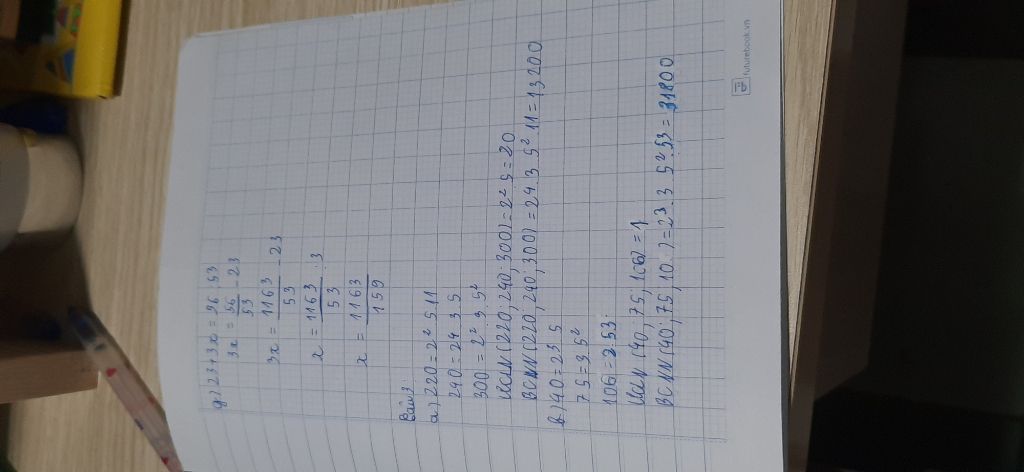 g) 23+3x = 56 : 53
3x = 56/53 - 23
3x = 1163/53 - 23
x = 1163/53 : 3
x = 1163/159
Bài 3
a) 220 = 2² 5 11
240 = 24 3 5
300 = 2² 3 5²
ƯCLN (220; 240; 300) = 2² 5 = 20
BCNN (220; 240; 300) = 24 . 3 5² 11 = 13200
b) 40 = 23 5
75 = 3 5²
106 = 2.53
ƯCLN (40; 75; 106) = 1
BCNN (40; 75; 10 ) = 23. 3 5².53 = 31800
futurebook.vn